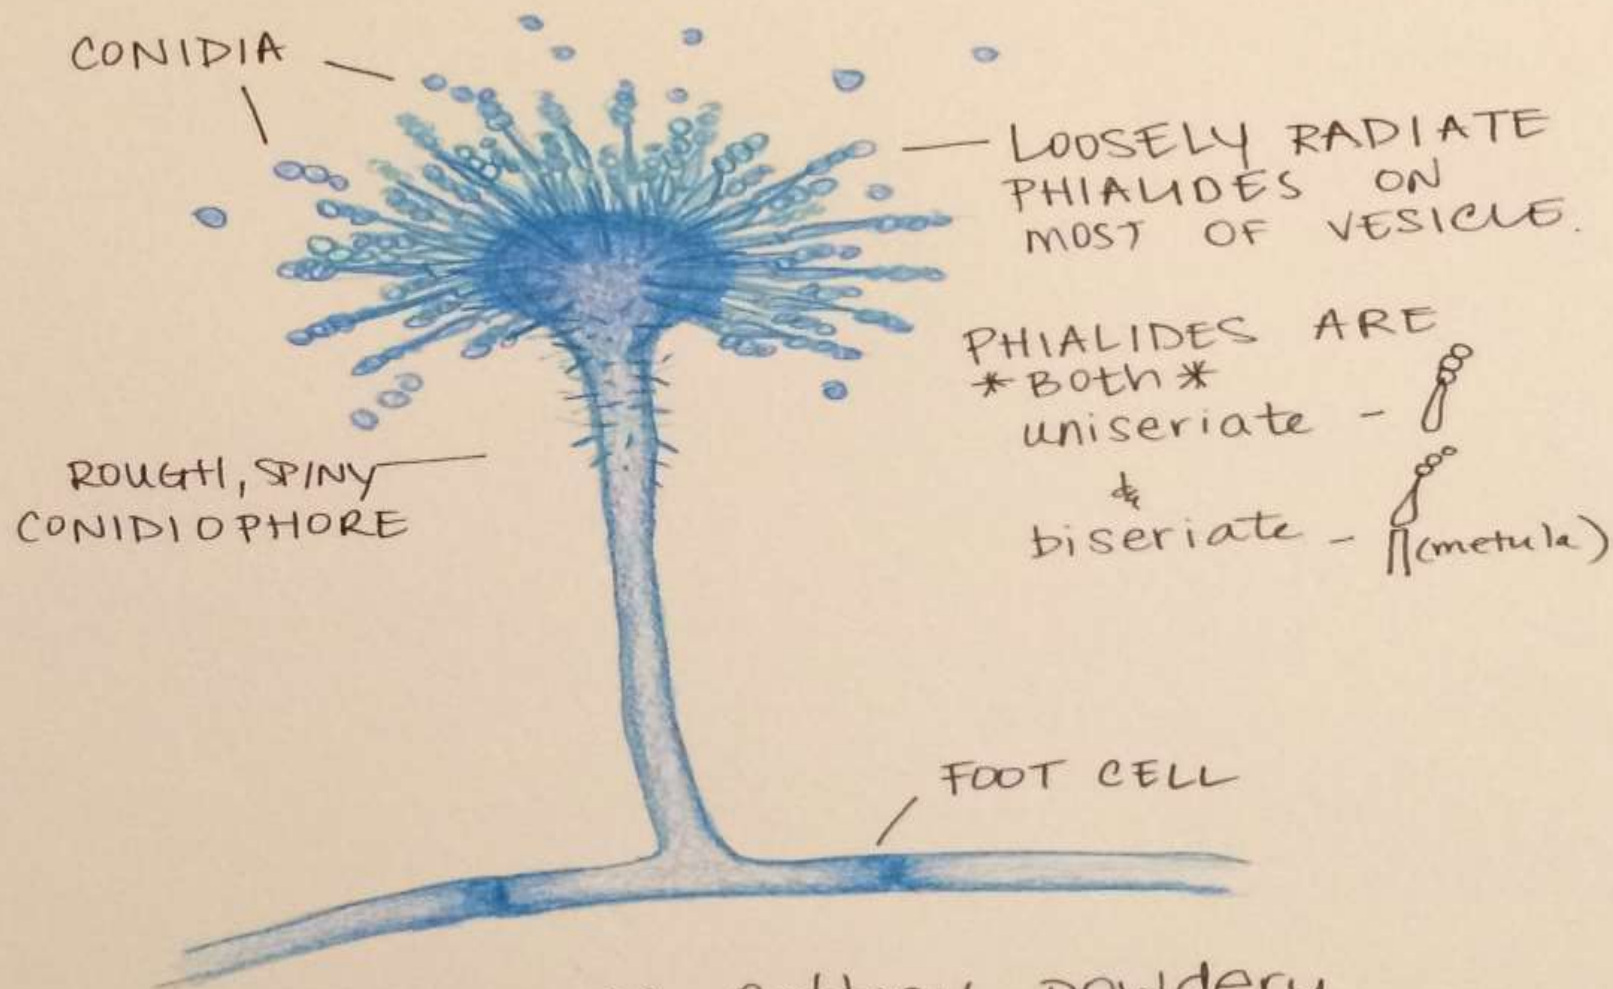 CONIDIA
LOOSELY RADIATE
PHIALIDES ON
MOST OF VESICLE.
PHIALIDES ARE
*Both*
uniseriate -
&
biseriate - (metula)
ROUGH, SPINY
CONIDIOPHORE
FOOT CELL
powdery